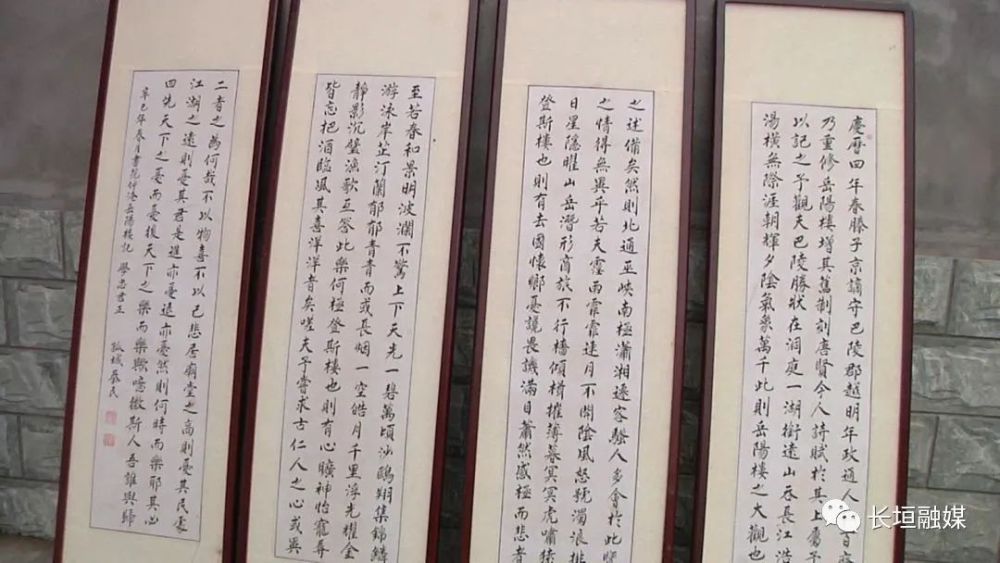 慶曆四年春滕子京謫守巴陵郡越明年政通人百廢
乃重修岳陽樓增其舊制刻唐賢今人詩賦於其上屬予
以記之予觀夫巴陵勝狀在洞庭一湖銜遠山吞長江浩
湯橫無際涯朝輝夕陰氣象萬千此則岳陽樓之大觀也
之述備矣然則北通巫峽南極瀟湘遠客騷人多會於此覽
之情得無異乎若夫霪雨霏霏連月不開陰風怒號濁浪排
日星隱曜山岳潛形商旅不行檣傾楫摧薄暮冥冥虎嘯猿
登斯樓也則有去國懷鄉憂讒畏譏滿目蕭然感極而悲者
至若春和景明波瀾不驚上下天光一碧萬頃沙鷗翔集錦鱗
游泳岸芷汀蘭郁郁青青而或長烟一空皓月千里浮光耀金
靜影沉璧漁歌互答此樂何極登斯樓也則有心曠神怡寵辱
皆忘把酒臨風其喜洋洋者矣嗟夫予嘗求古仁人之心或異
二者之為何哉不以物喜不以己悲居廟堂之高則憂其民處
江湖之遠則憂其君是進亦憂退亦憂然則何時而樂耶其必
曰先天下之憂而憂後天下之樂而樂歟噫微斯人吾誰與歸
辛巳年春月書范仲淹岳陽樓記
长垣融媒